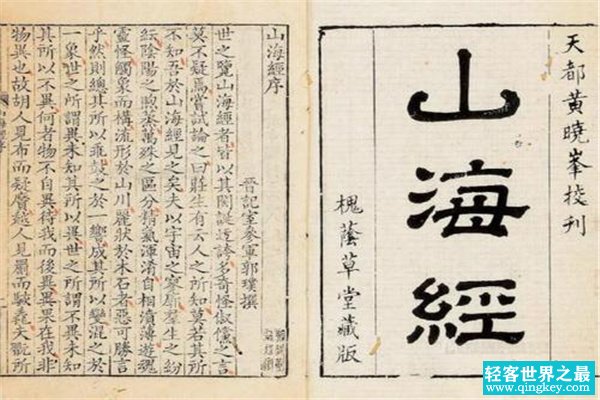 天都黃曉峯校刊
山海經
槐蔭草堂藏版
山海經序
晉記室參軍郭璞撰
世之覽山海經者皆以其閎誕迂誇多奇怪俶儻之言
莫不疑焉嘗試論之曰莊生有云人之所知莫若其所
不知吾於山海經見之矣夫以宇宙之寥廓羣生之紛
紜陰陽之煦蒸萬殊之區分精氣渾淆自相濆薄遊魂
靈怪觸象而構流形於山川麗狀於木石者惡可勝言
乎然則總其所以乖鼓之於一響成其所以變混之於
一象世之所謂異未知其所以異世之所謂不異未知
其所以不異何者物不自異待我而後異異果在我非
物異也故胡人見布而疑黂越人見罽而駭毳夫翫所
轻客世界之最
www.qingkey.com